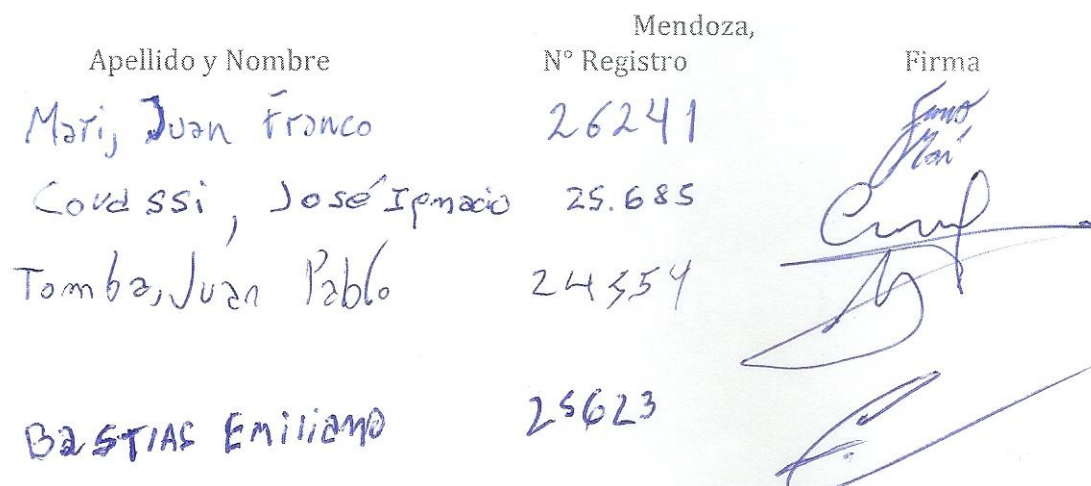 Mendoza,
Apellido y Nombre N° Registro Firma
Mari, Juan Franco 26241
Covassi, José Ignacio 25.685
Tomba, Juan Pablo
BASTIAS Emiliano 25623